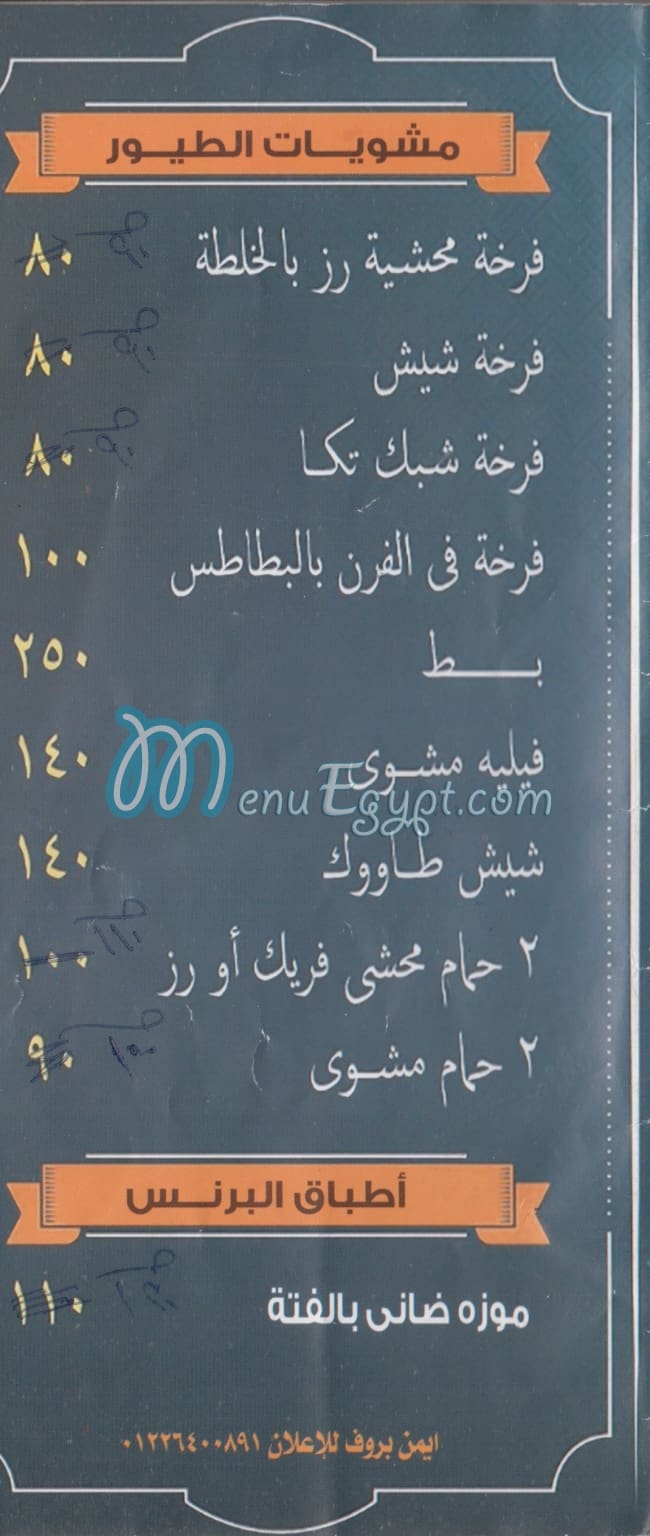 مشويات الطيور
فرخة محشية رز بالخلطة ٨٠
فرخة شيش ٨٠
فرخة شبك تكا ٨٠
فرخة فى الفرن بالبطاطس ١٠٠
بط ٢٥٠
فيليه مشوى ١٤٠
MenuEgypt.com
شيش طاووك ١٤٠
٢ حمام محشى فريك أو رز ١٠٠
٢ حمام مشوى ٩٠
أطباق البرنس
موزه ضانى بالفتة ١١٠
ايمن بروف للإعلان ٠١٢٢٦٤٠٠٨٩١